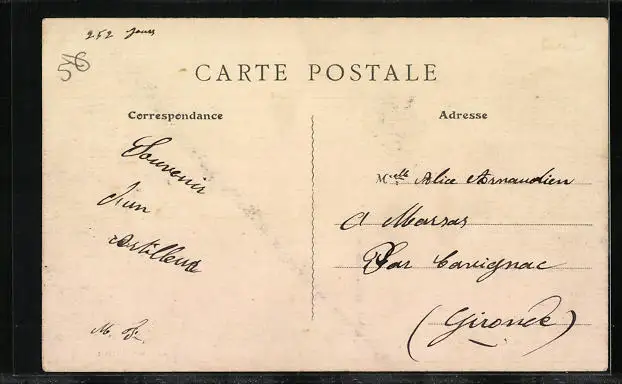 252 jours
56
CARTE POSTALE
Correspondance
Souvenir
d'un
Artilleur
M. F.
Adresse
Melle Alice Arnaudien
A Marsas
Par Cavignac
(Gironde)